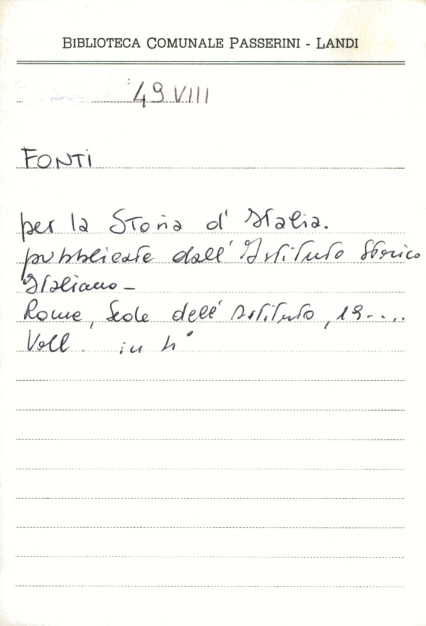 BIBLIOTECA COMUNALE PASSERINI - LANDI
49 VIII
FONTI
per la Storia d' Italia.
pubblicate dall' Istituto Storico
Italiano -
Roma, Sede dell' Istituto, 19....
Voll. in 4°